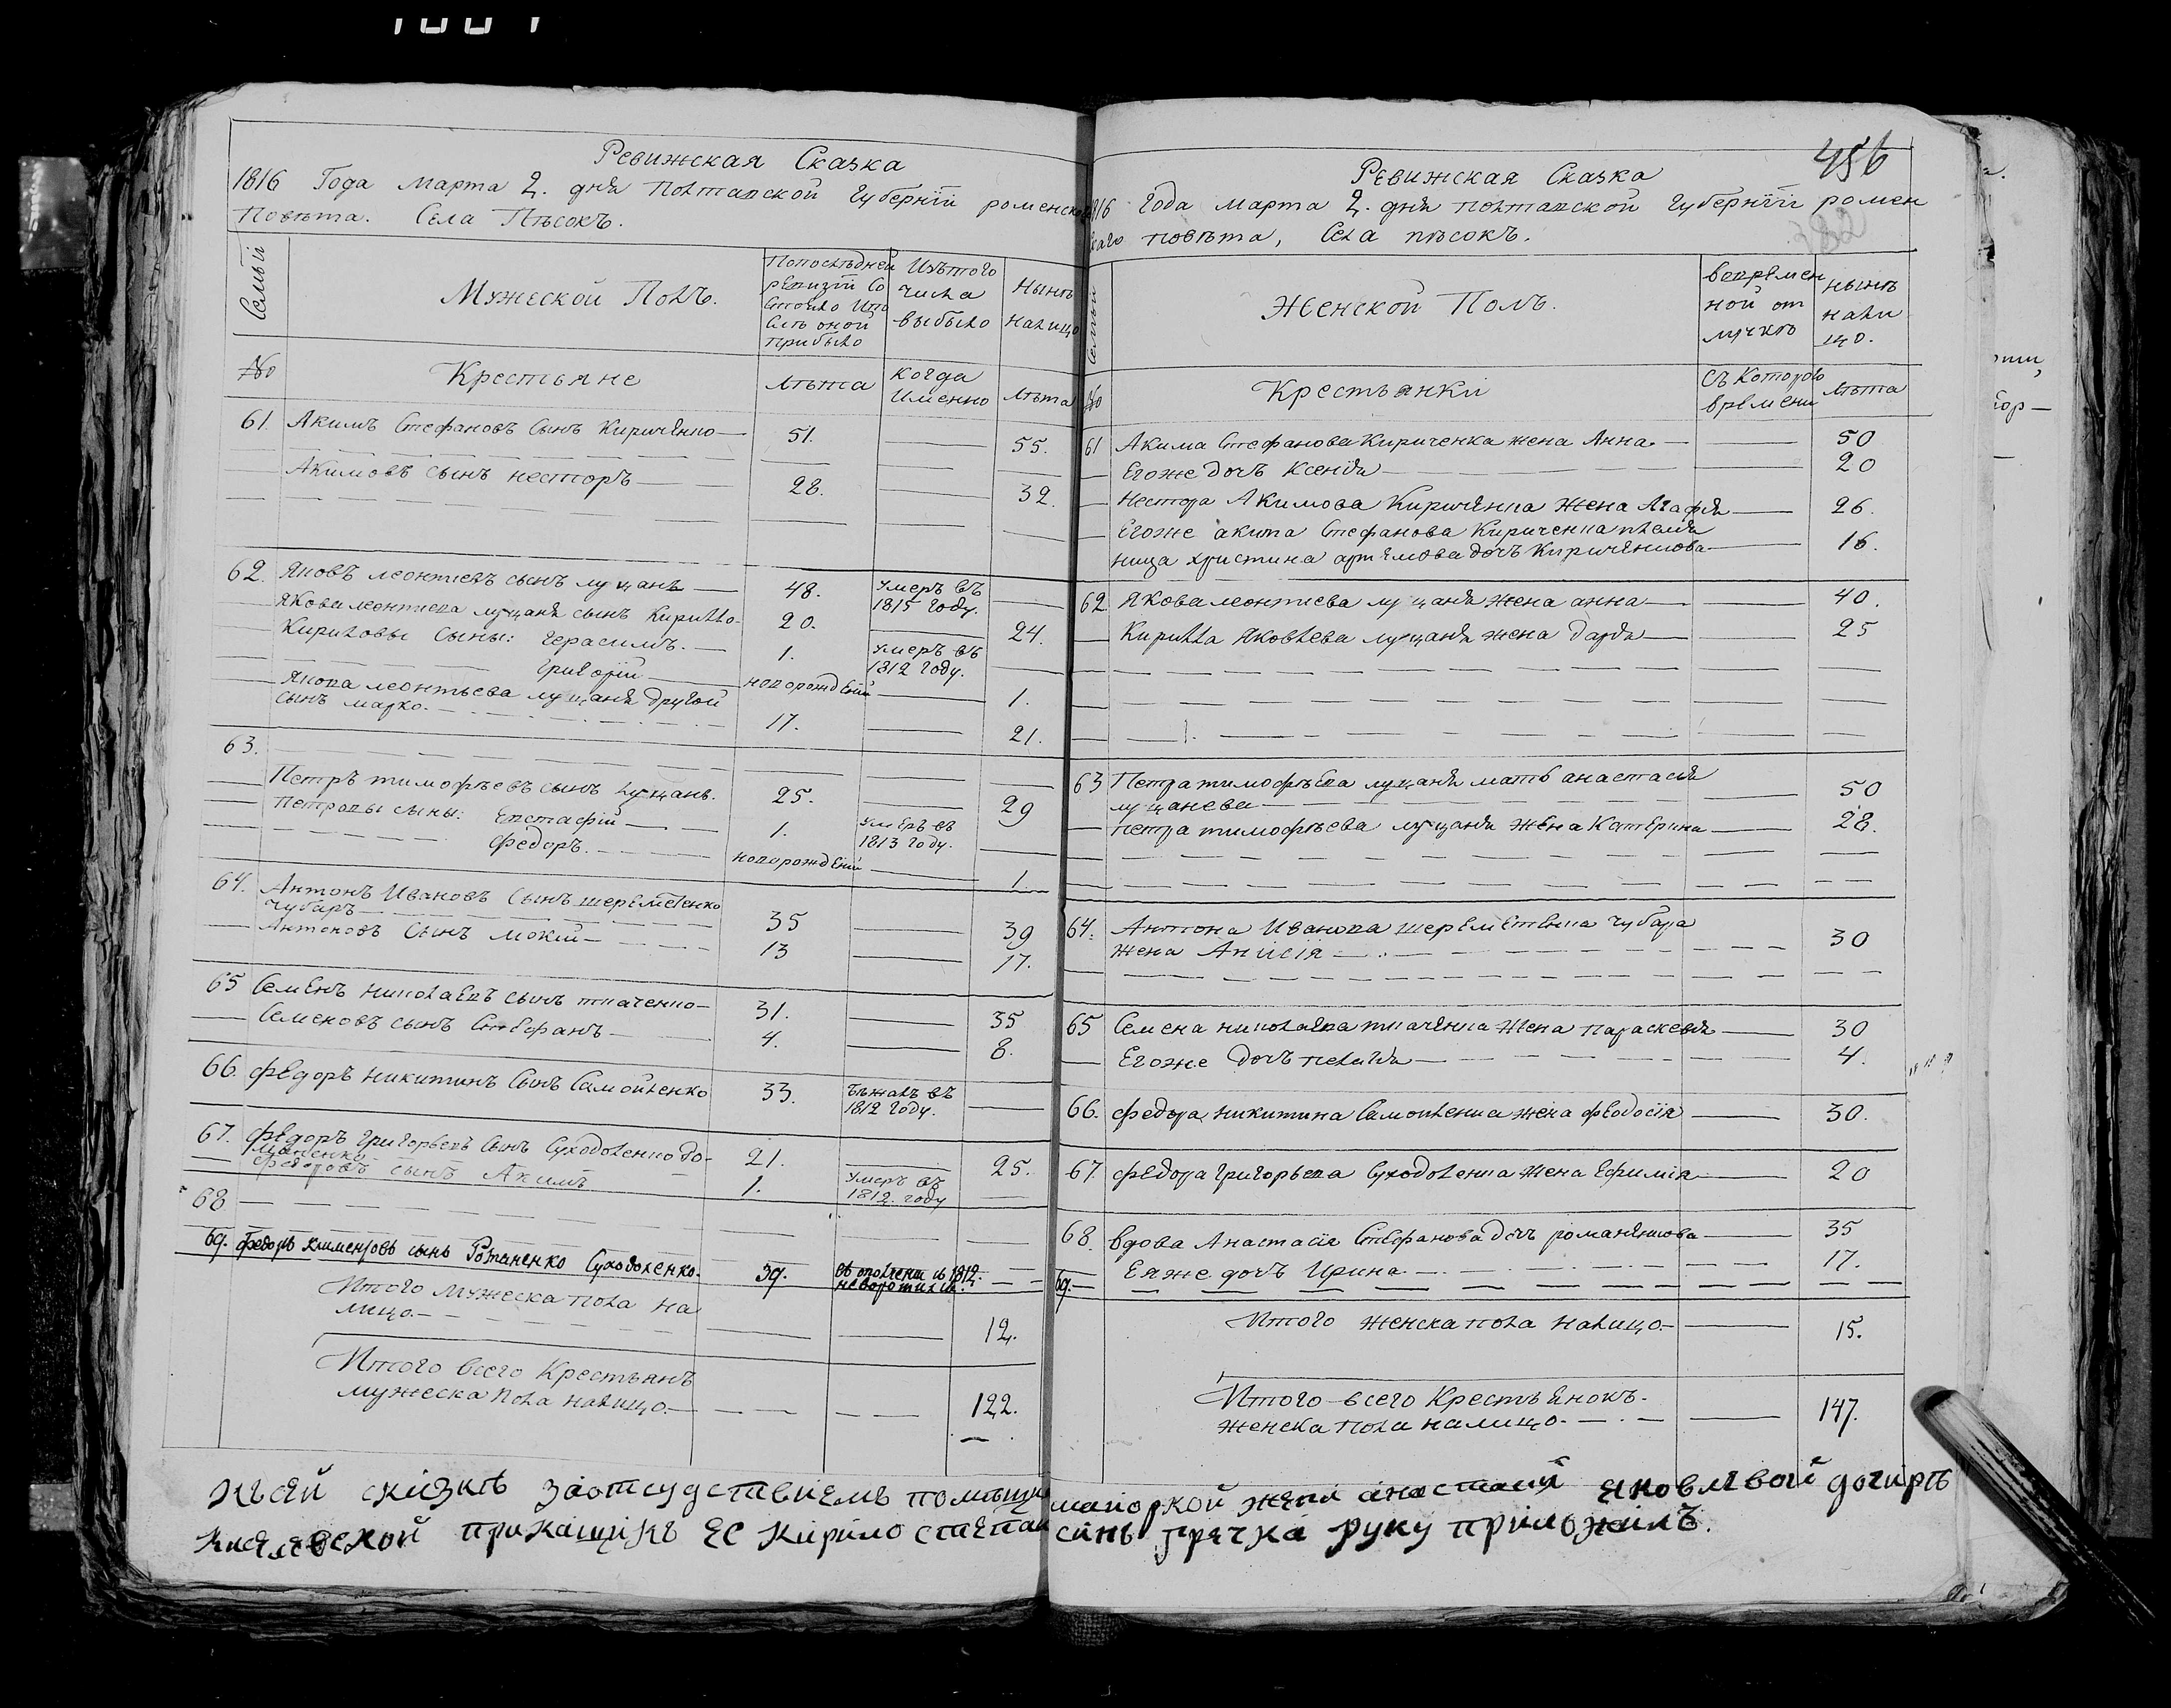 Ревижская Сказка
1816 Года марта 2. дня Полтавской Губерніи роменско
Повѣта. Села Пѣсокъ.
Семьи
Мужеской Полъ.
Попослѣдней
ревизіи Со
стояло Ипо
слѣ оной
прибыло
Изътого
числа
выбыло
Нынѣ
налицо
№
Крестьяне
лѣта
когда
Именно
лѣта
61. Акимъ Стефановъ Сынъ Киричѣнко — 51. — 55.
Акимовъ сынъ несторъ — 28. — 32.
62. Яковъ леонтиевъ сынъ луцанъ — 48. Умеръ въ
1815 году. —
Якова леонтиева луцаня сынъ Кирилло- 20. — 24.
Кириловы Сыны: герасимъ. — 1. умеръ въ
1812 году. —
григорій — новорожденій — 1.
Якова леонтьева луцаня другой
сынъ марко. — 17. — 21.
63.
Петръ тимофѣевъ сынъ луцань. 25. — 29
Петровы сыны: Евстафій — 1. умеръ въ
1813 году. —
федоръ. — новорожденій — 1
64. Антонъ Ивановъ Сынъ шереметенко
чубаръ — 35 — 39
Антоновъ Сынъ мокій — 13 — 17.
65 Семенъ николаевъ сынъ ткаченко — 31. — 35
Семеновъ сынъ Стефанъ — 4. — 8.
66. федоръ никитинъ Сынъ Самойленко 33. бѣжалъ въ
1812 году. —
67. федоръ григорьевъ сынъ Суходоленко до-
21. — 25.
федоровъ сынъ Акимъ 1. Умеръ въ
1812. году —
68
69. Федоръ Климентовъ сынъ Романенко Суходоленко. 39. въ ополчени съ 1812.
неворотился.
Итого мужеска пола на
лицо. — 12.
Итого всего Крестьянъ
мужеска пола налицо. — 122.
456
Ревижская Сказка
1816 года марта 2. дня полтавской губерніи ромен
скаго повѣта, Села пѣсокъ.
Семьи
Женской Полъ.
вовремен
ной от
лучкѣ
нынѣ
нали
цо.
№
Крестьянки
Съ Которого
времени
лѣта
61 Акима Стефанова Кириченка жена Анна. — 50
Егоже дочъ Ксенія — 20
Нестора Акимова Киричѣнка жена Агафія — 26.
Егоже акима Стефанова Кириченка племя
ница христина артемова дочъ Киричѣнкова — 16.
62. Якова леонтиева луцаня жена анна — 40.
Кирилла Яковлева луцаня жена дарія — 25
63 Петра тимофѣева луцаня мать анастасія
луцанева — 50
петра тимофѣева луцаня жена Катерина — 28.
64. Антона Иванова шереметенка чубара
жена Анисія — 30
65 Семена николаева ткачѣнка жена параскевія — 30
Егоже дочъ пелагія — 4.
66. федора никитина Самойленка жена феодосія — 30.
67. федора григорьева Суходоленка жена Ефимія — 20
68. вдова Анастасія Стефанова дочъ романѣнкова — 35
Еяже дочъ Ирина — 17.
69.
Итого женска пола налицо. — 15.
Итого всего Крестьянокъ.
женска пола налицо. — 147.
Ксей сказкѣ заотсудствиемъ помѣщици маиоркой жени анастасий яковлевой дочирѣ
прикащикъ ее Кирило степан синъ гречка руку приложилъ.